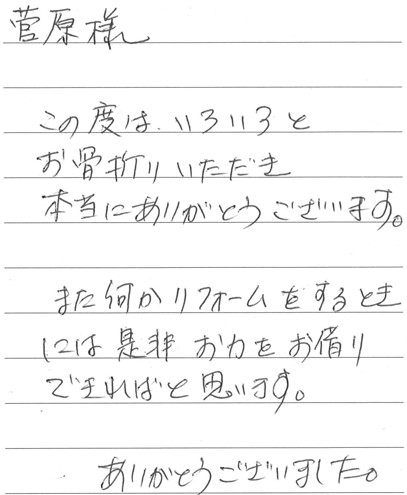 菅原様
この度は、いろいろと
お骨折りいただき
本当にありがとうございます。
また何かリフォームをするとき
には是非お力をお借り
できればと思います。
ありがとうございました。